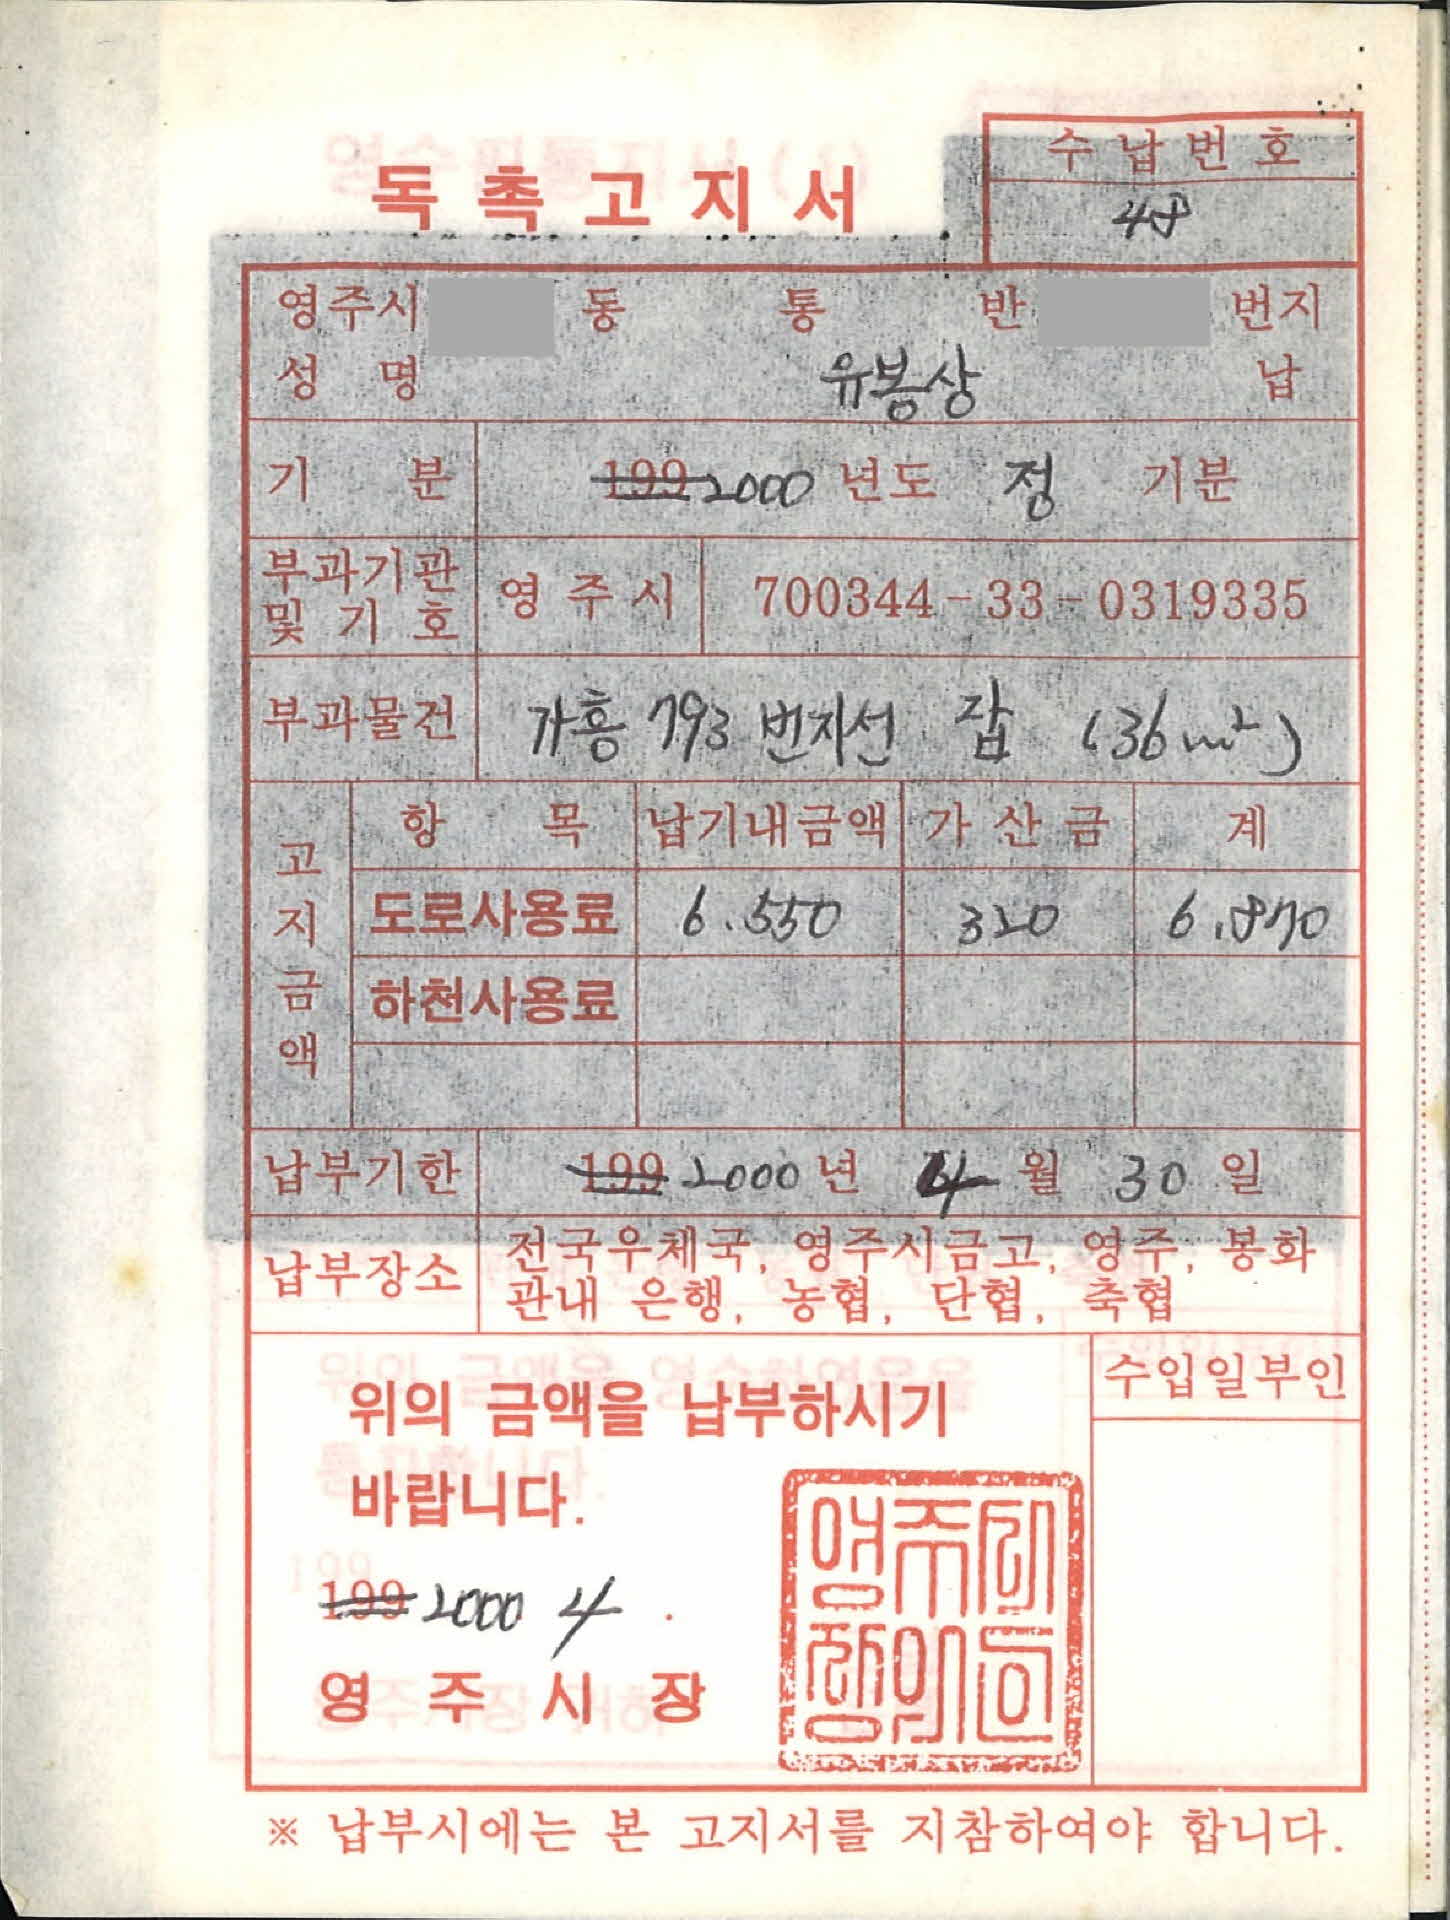 독촉고지서
수납번호
48
영주시 동 통 반 번지
성명 유봉상 납
기분 199 2000 년도 정 기분
부과기관 및 기호 영주시 700344-33-0319335
부과물건 가흥 793 번지선 잡 (36m²)
고지금액
항목 납기내금액 가산금 계
도로사용료 6.550 320 6.870
하천사용료
납부기한 199 2000 년 4 월 30 일
납부장소 전국우체국, 영주시금고, 영주, 봉화
관내 은행, 농협, 단협, 축협
위의 금액을 납부하시기
바랍니다.
수입일부인
199 2000. 4 .
영주시장
영주시
장의인
※ 납부시에는 본 고지서를 지참하여야 합니다.